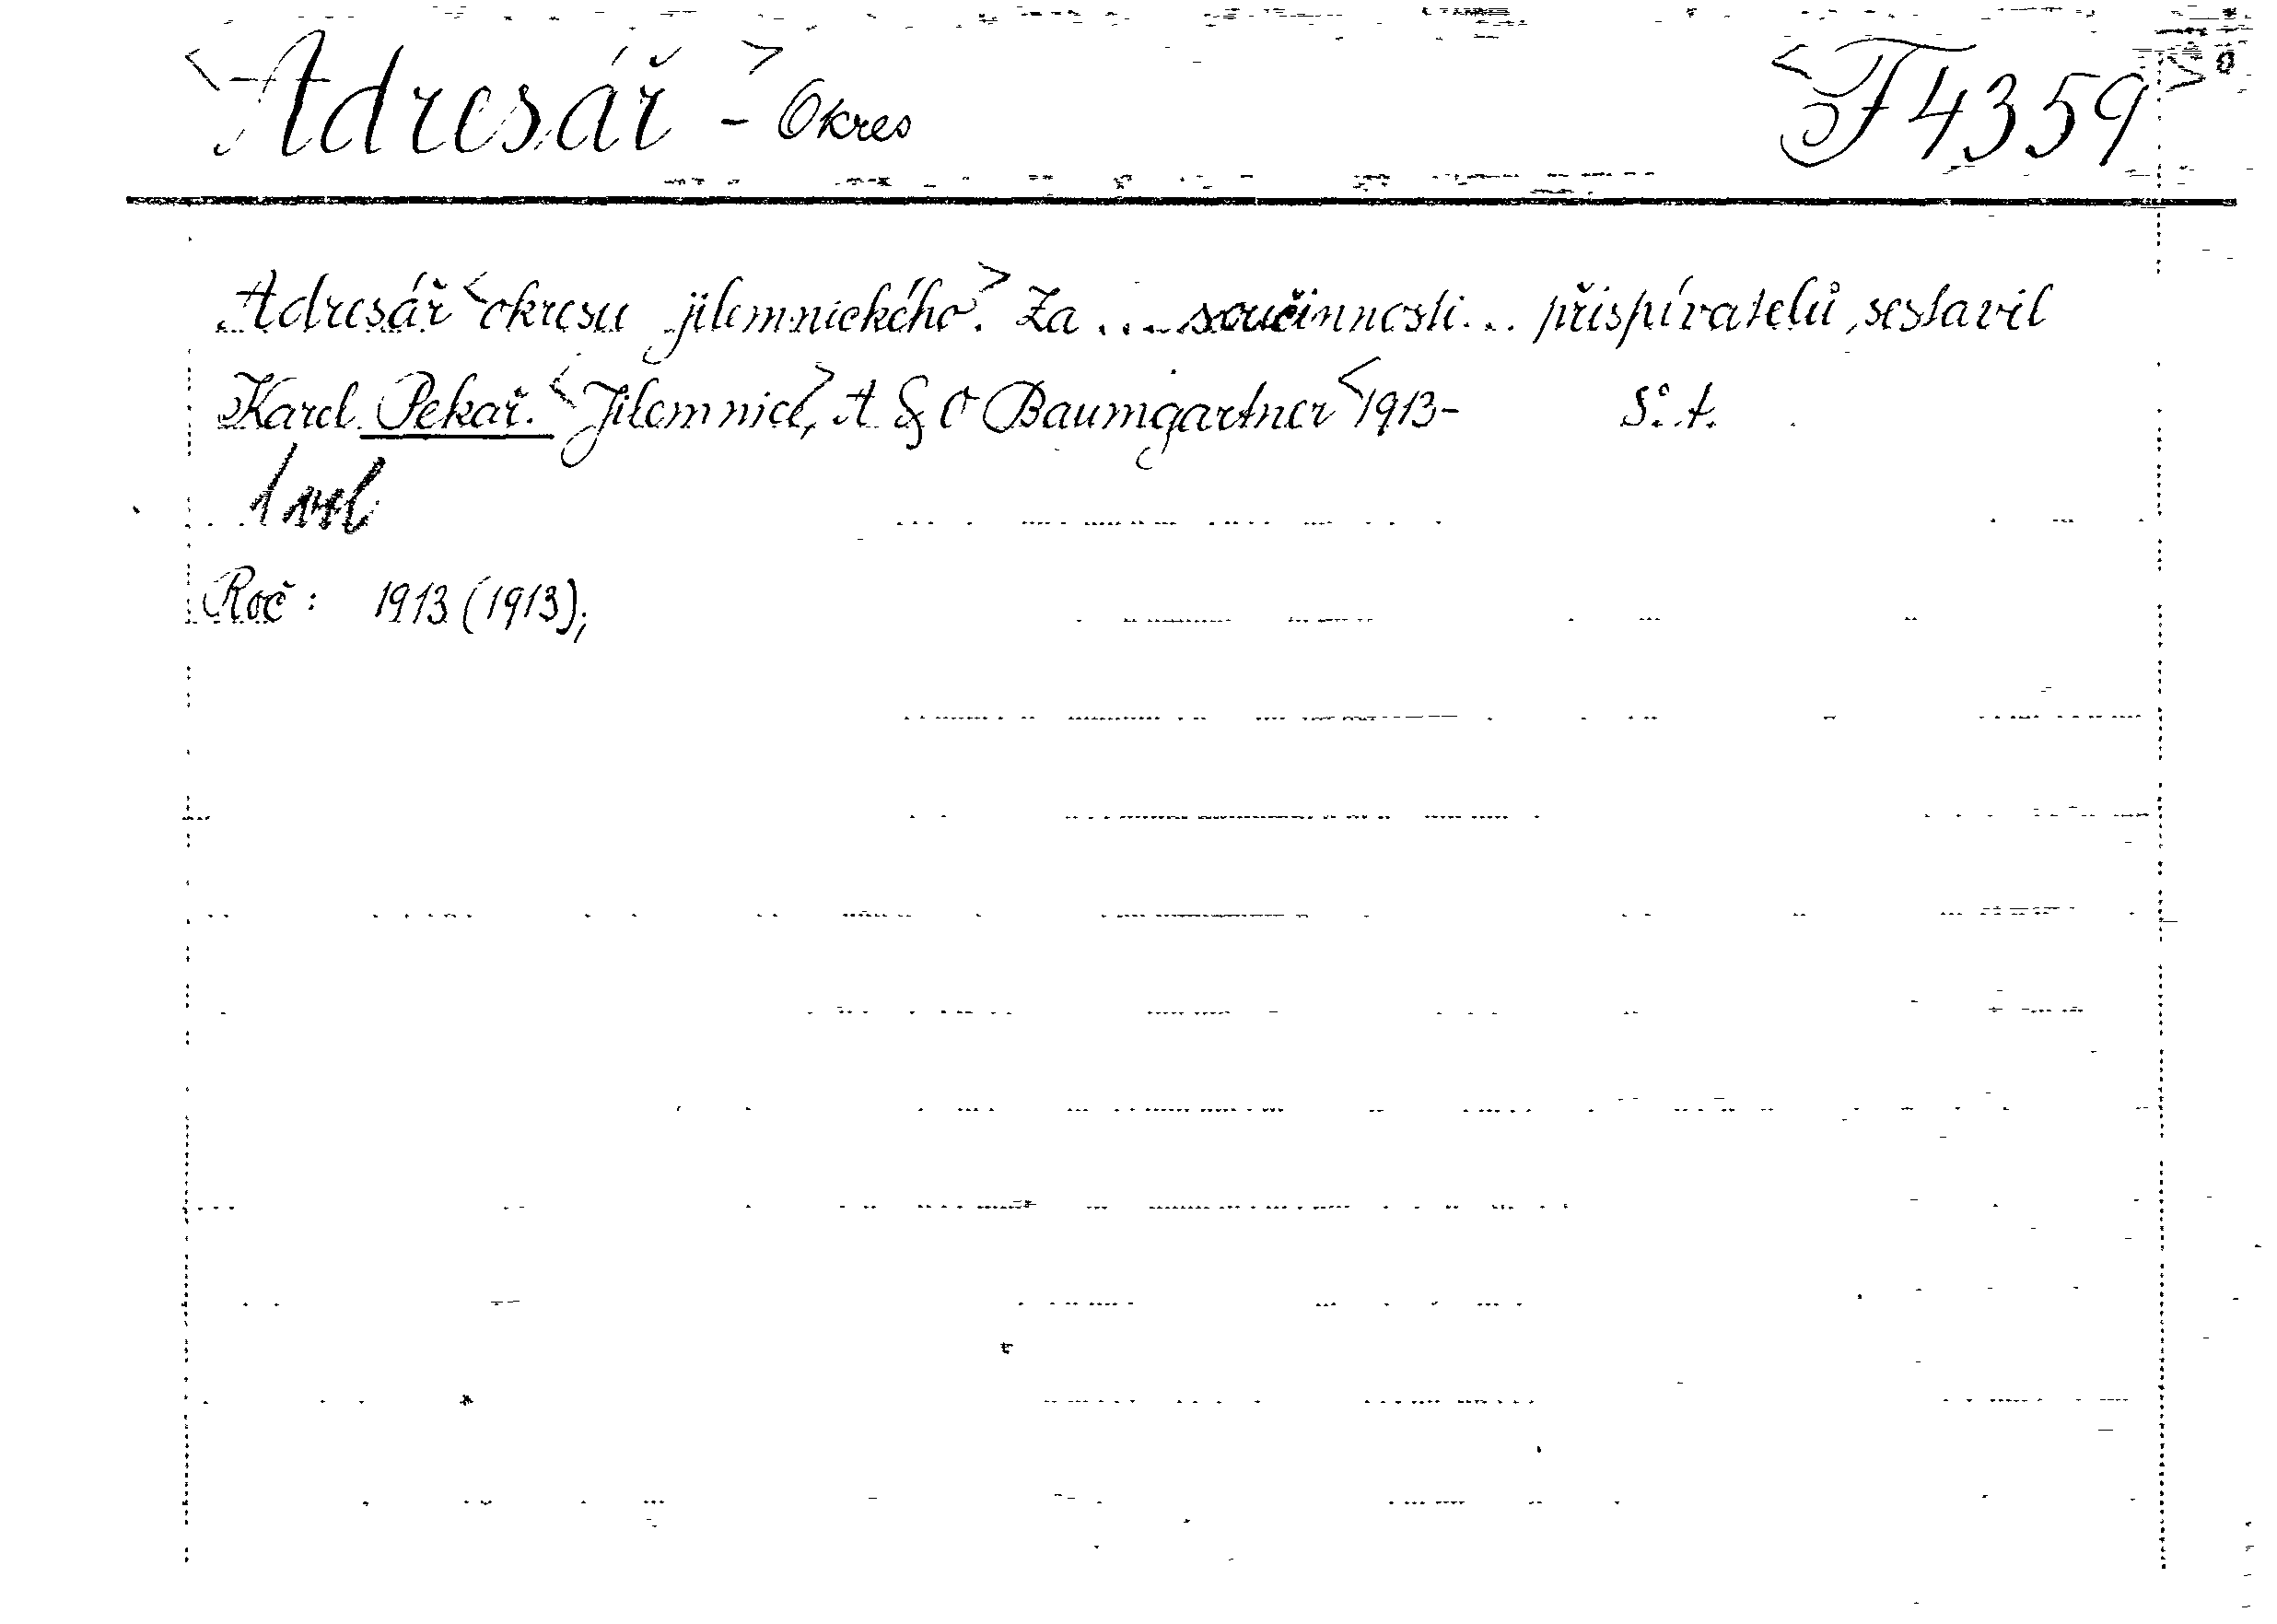 <Adresář> - Okres <F 4359>
Adresář <okresu jilemnického>. Za ... součinnosti ... přispívatelů, sestavil
Karel Pekař. <Jilemnice>, A & O Baumgartner <1913- S°. t.
1 vol
Roč: 1913 (1913);